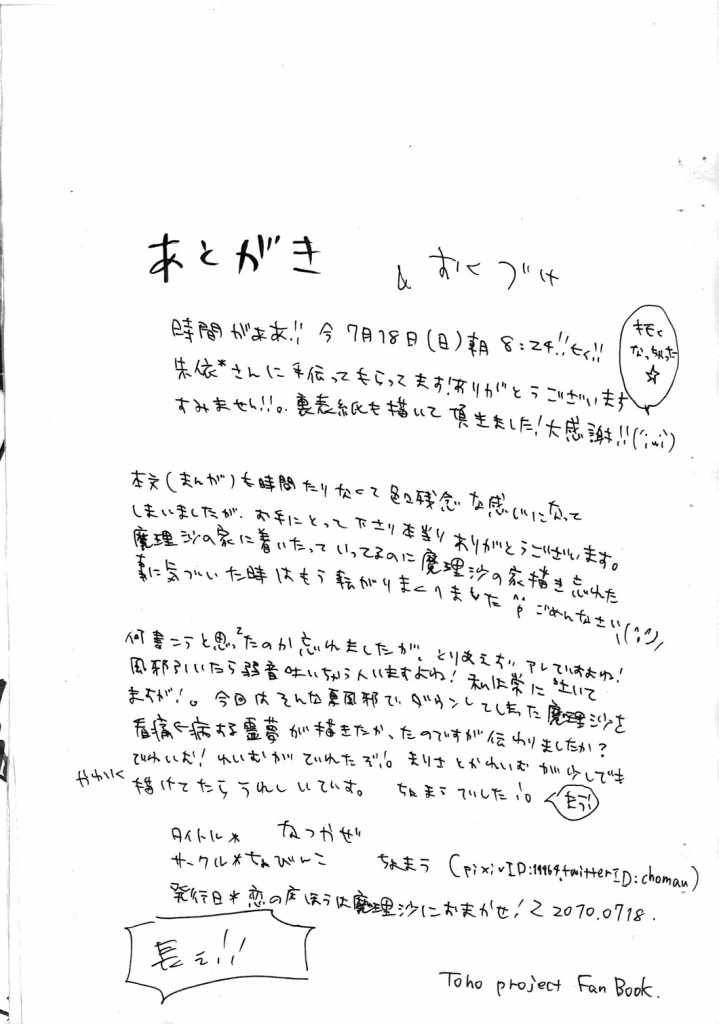 あとがき & おくづけ
時間がぁあ!! 今 7月18日(日)朝 8:24!!
朱依*さんに手伝ってもらってます!ありがとうございます
すみません!!。裏表紙も描いて頂きました!大感謝!!
☆
本文(まんが)も時間たりなくて色々残念な感じになって
しまいましたが、お手にとって下さり本当にありがとうございます。
魔理沙の家に着いたっていってるのに魔理沙の家描き忘れた
事に気づいた時はもう転がりまくりました ごめんなさい
何書こうと思ってたのか忘れましたが、とりあえずアレですよね!
風邪引いたら弱音吐いちゃう人いますよね! 私は常に吐いて
ますが!。今回はそんな夏風邪でダウンしてしまった魔理沙を
看病する霊夢が描きたかったのですが伝わりましたか?
でれいむ!れいむがでれたぞ!。まりさとかれいむが少しでも
かわいく描けてたらうれしいです。 ちょまうでした!。
タイトル* なつかぜ
サークル*ちょびんこ ちょまう (pixivID:19964,twitterID:chomau)
発行日*恋の床ほうは魔理沙におまかせ!2 2010.0718.
長ぇ!!
Toho project Fan Book.